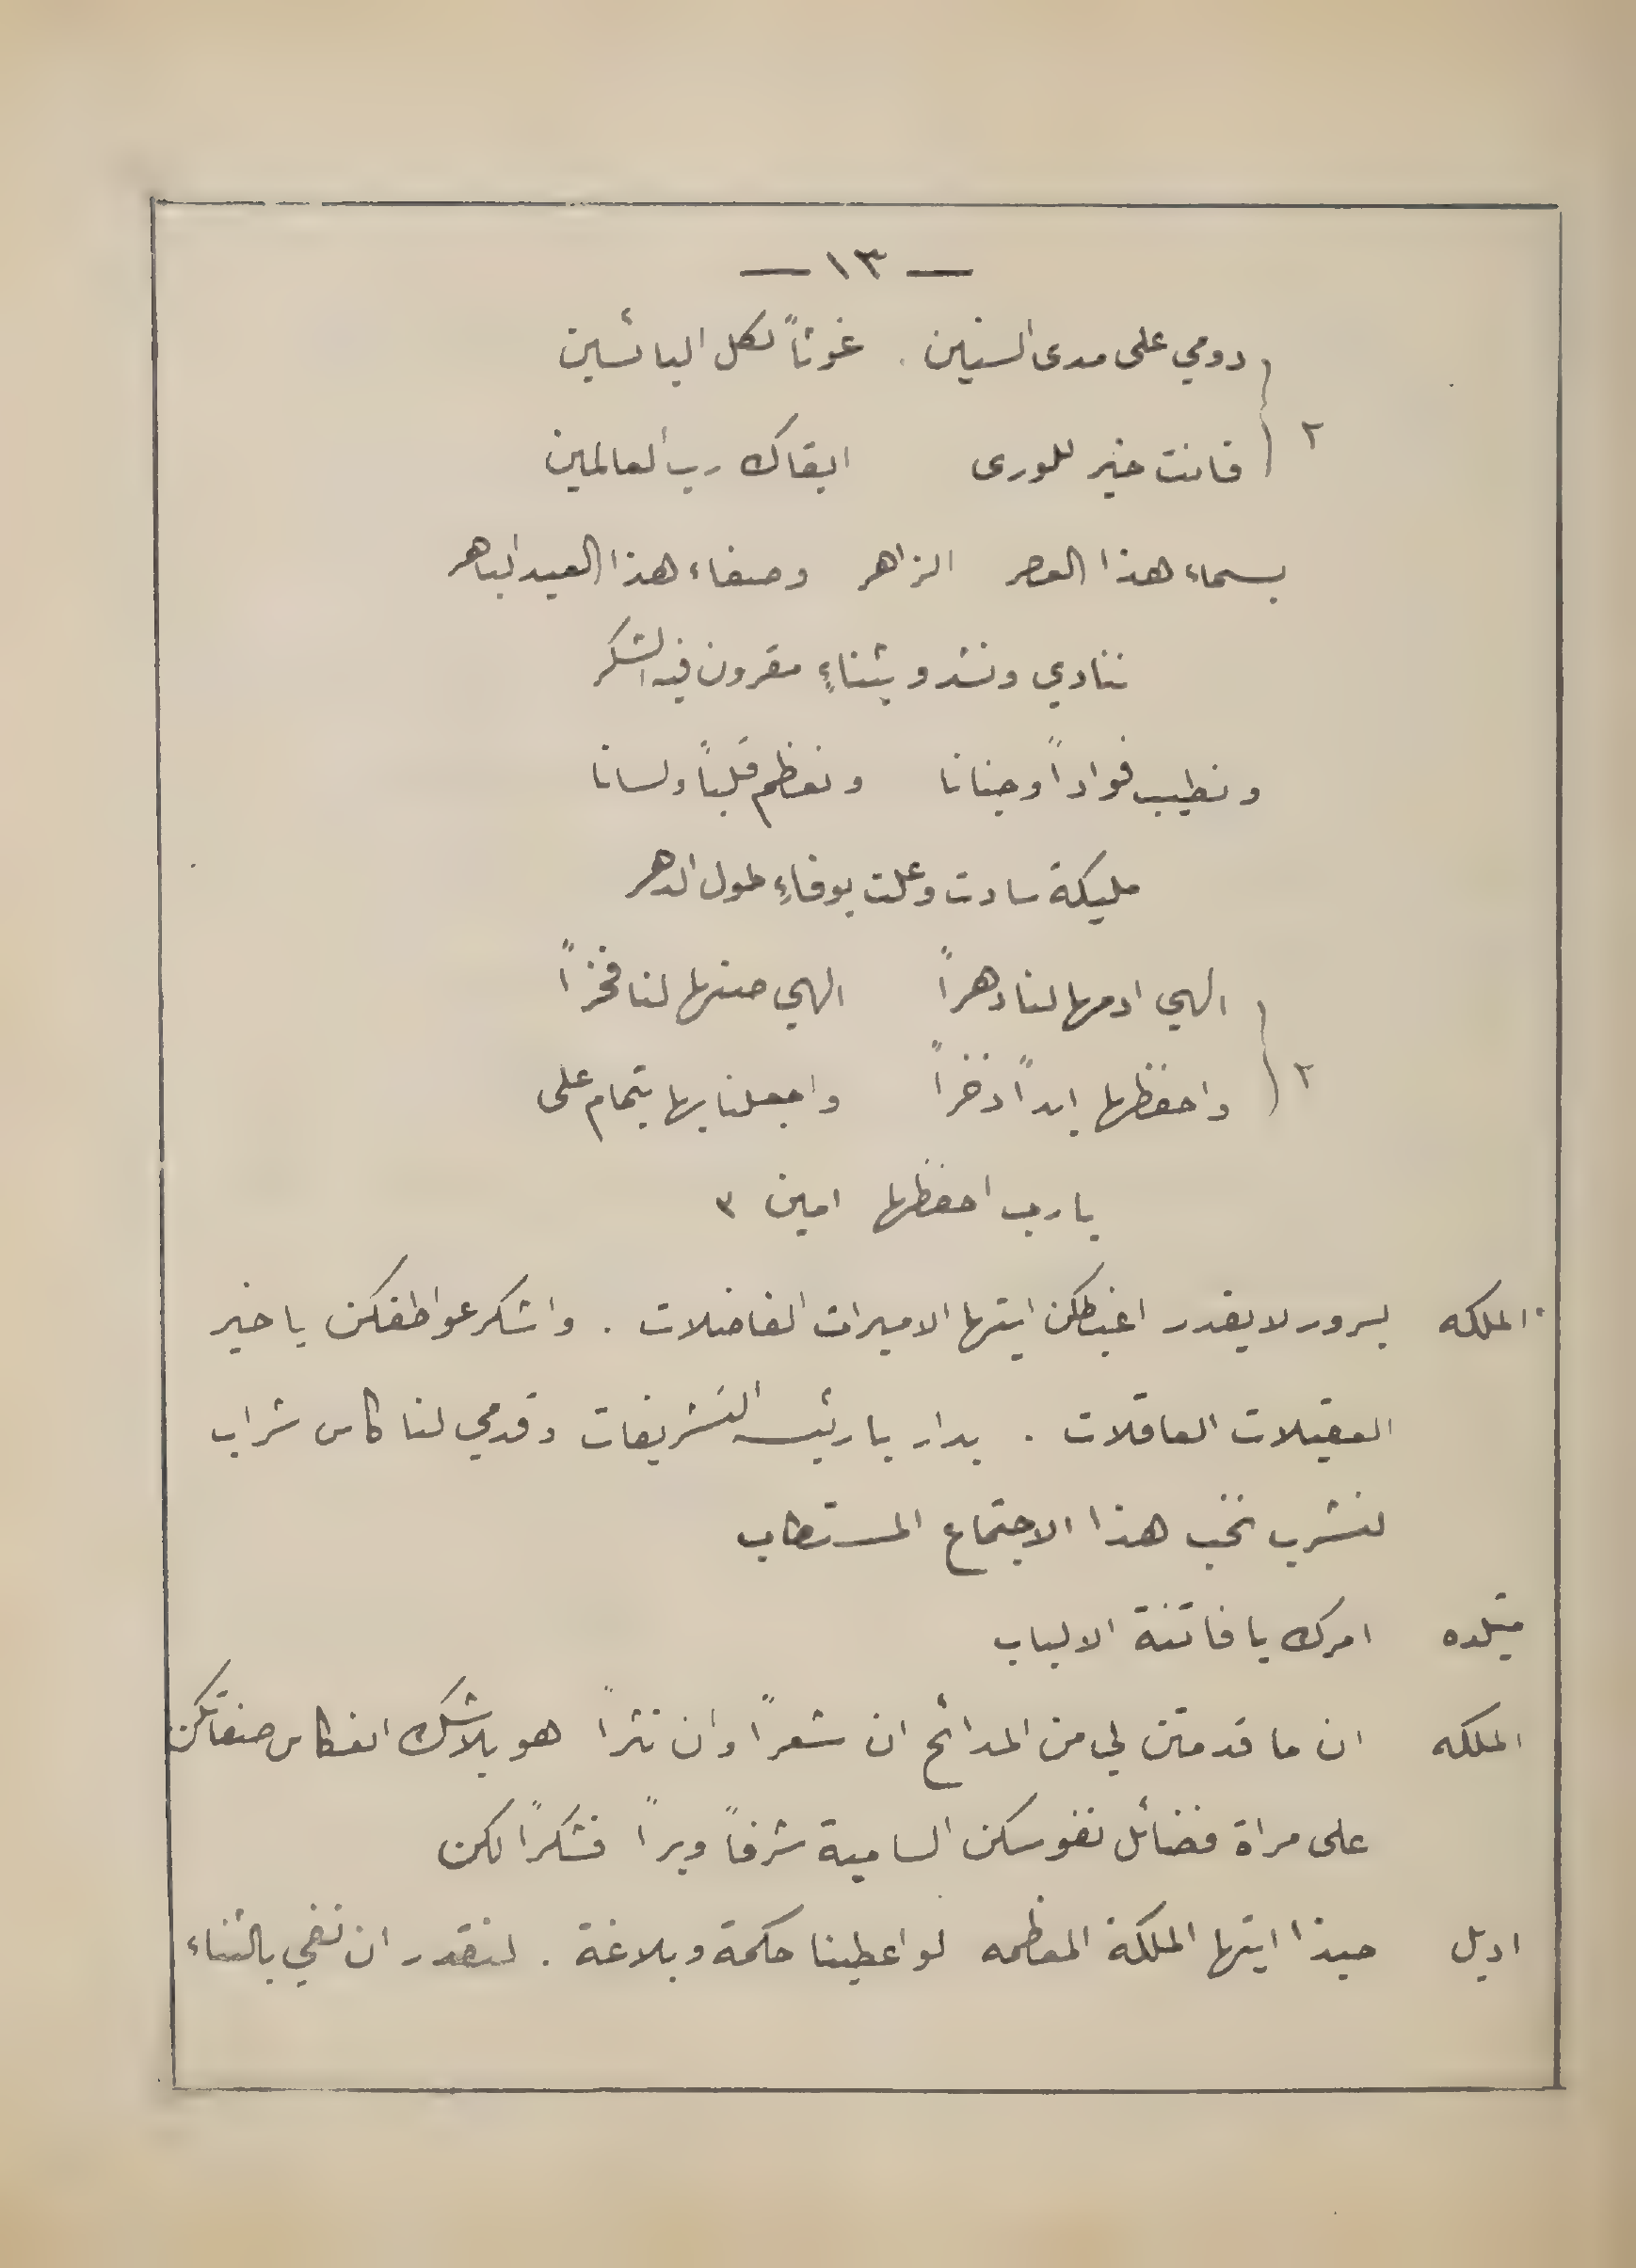 — ١٣ —
دومي على مدى السنين . غوثاً لكل البائسين
٢ فانت خير للورى ابقاك رب العالمين
بسماء هذا العصر الزاهر وصفاء هذا العيد الباهر
ننادي ونشدو بثناءٍ مقرون فيه الشكر
ونطيب فواداً وجنانا ونعظم قلباً ولسانا
مليكة سادت وعلت بوفاءٍ طول الدهر
الهي ادمها لنا دهراً الهي صنها لنا فخراً
٢ واحفظها ابداً ذخراً واجعلنا بها بتمام على
يا رب احفظها امين ٣
الملكه بسرور لا يقدر اغبطكن ايتها الاميرات الفاضلات . واشكر عواطفكن يا خير
العقيلات العاقلات . بدار يا رئيسه التشريفات وقدمي لنا كاس شراب
لنشرب نخب هذا الاجتماع المستطاب
متيلده امرك يا فاتنة الالباب
الملكه ان ما قدمتن لي من المدائح ان شعراً وان نثراً هو بلا شك انعكاس صفاتكن
على مراة فضائل نفوسكن السامية شرفاً وبراً فشكراً لكن
اديل حبذا ايتها الملكة المعظمه لو اعطينا حكمة وبلاغة . لنقدر ان نفي بالثناء